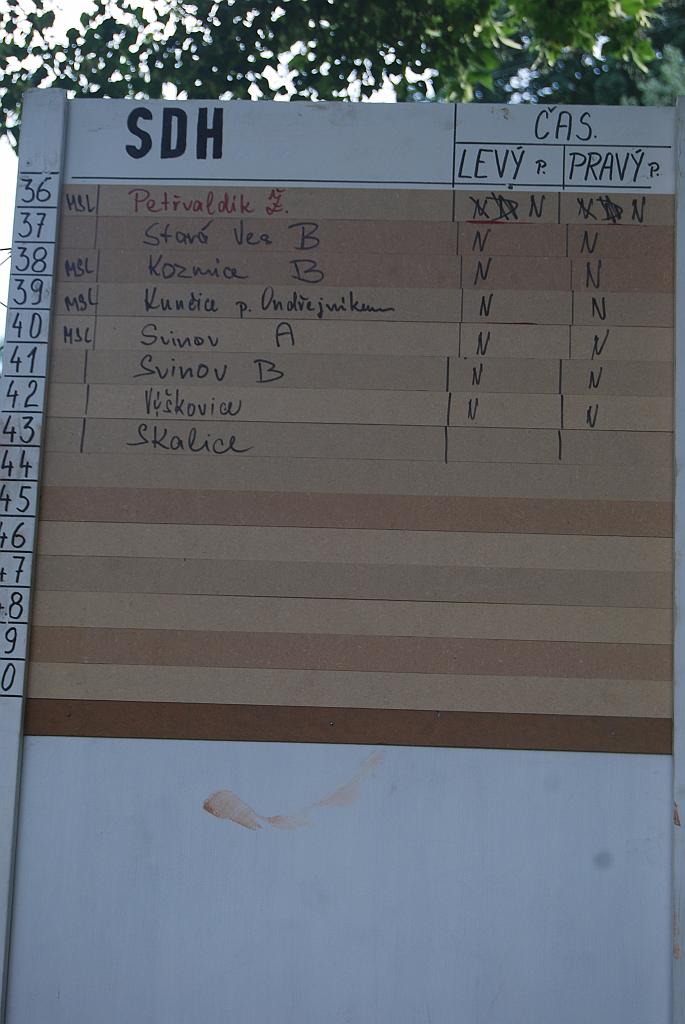 SDH ČAS.
LEVÝ P. PRAVÝ P.
36 MSL Petřvaldík Ž. N N
37 Stará Ves B N N
38 MSL Kozmice B N N
39 MSL Kunčice p. Ondřejníkem N N
40 MSL Svinov A N N
41 Svinov B N N
42 Výškovice N N
43 Skalice
44
45
46
47
48
9
0